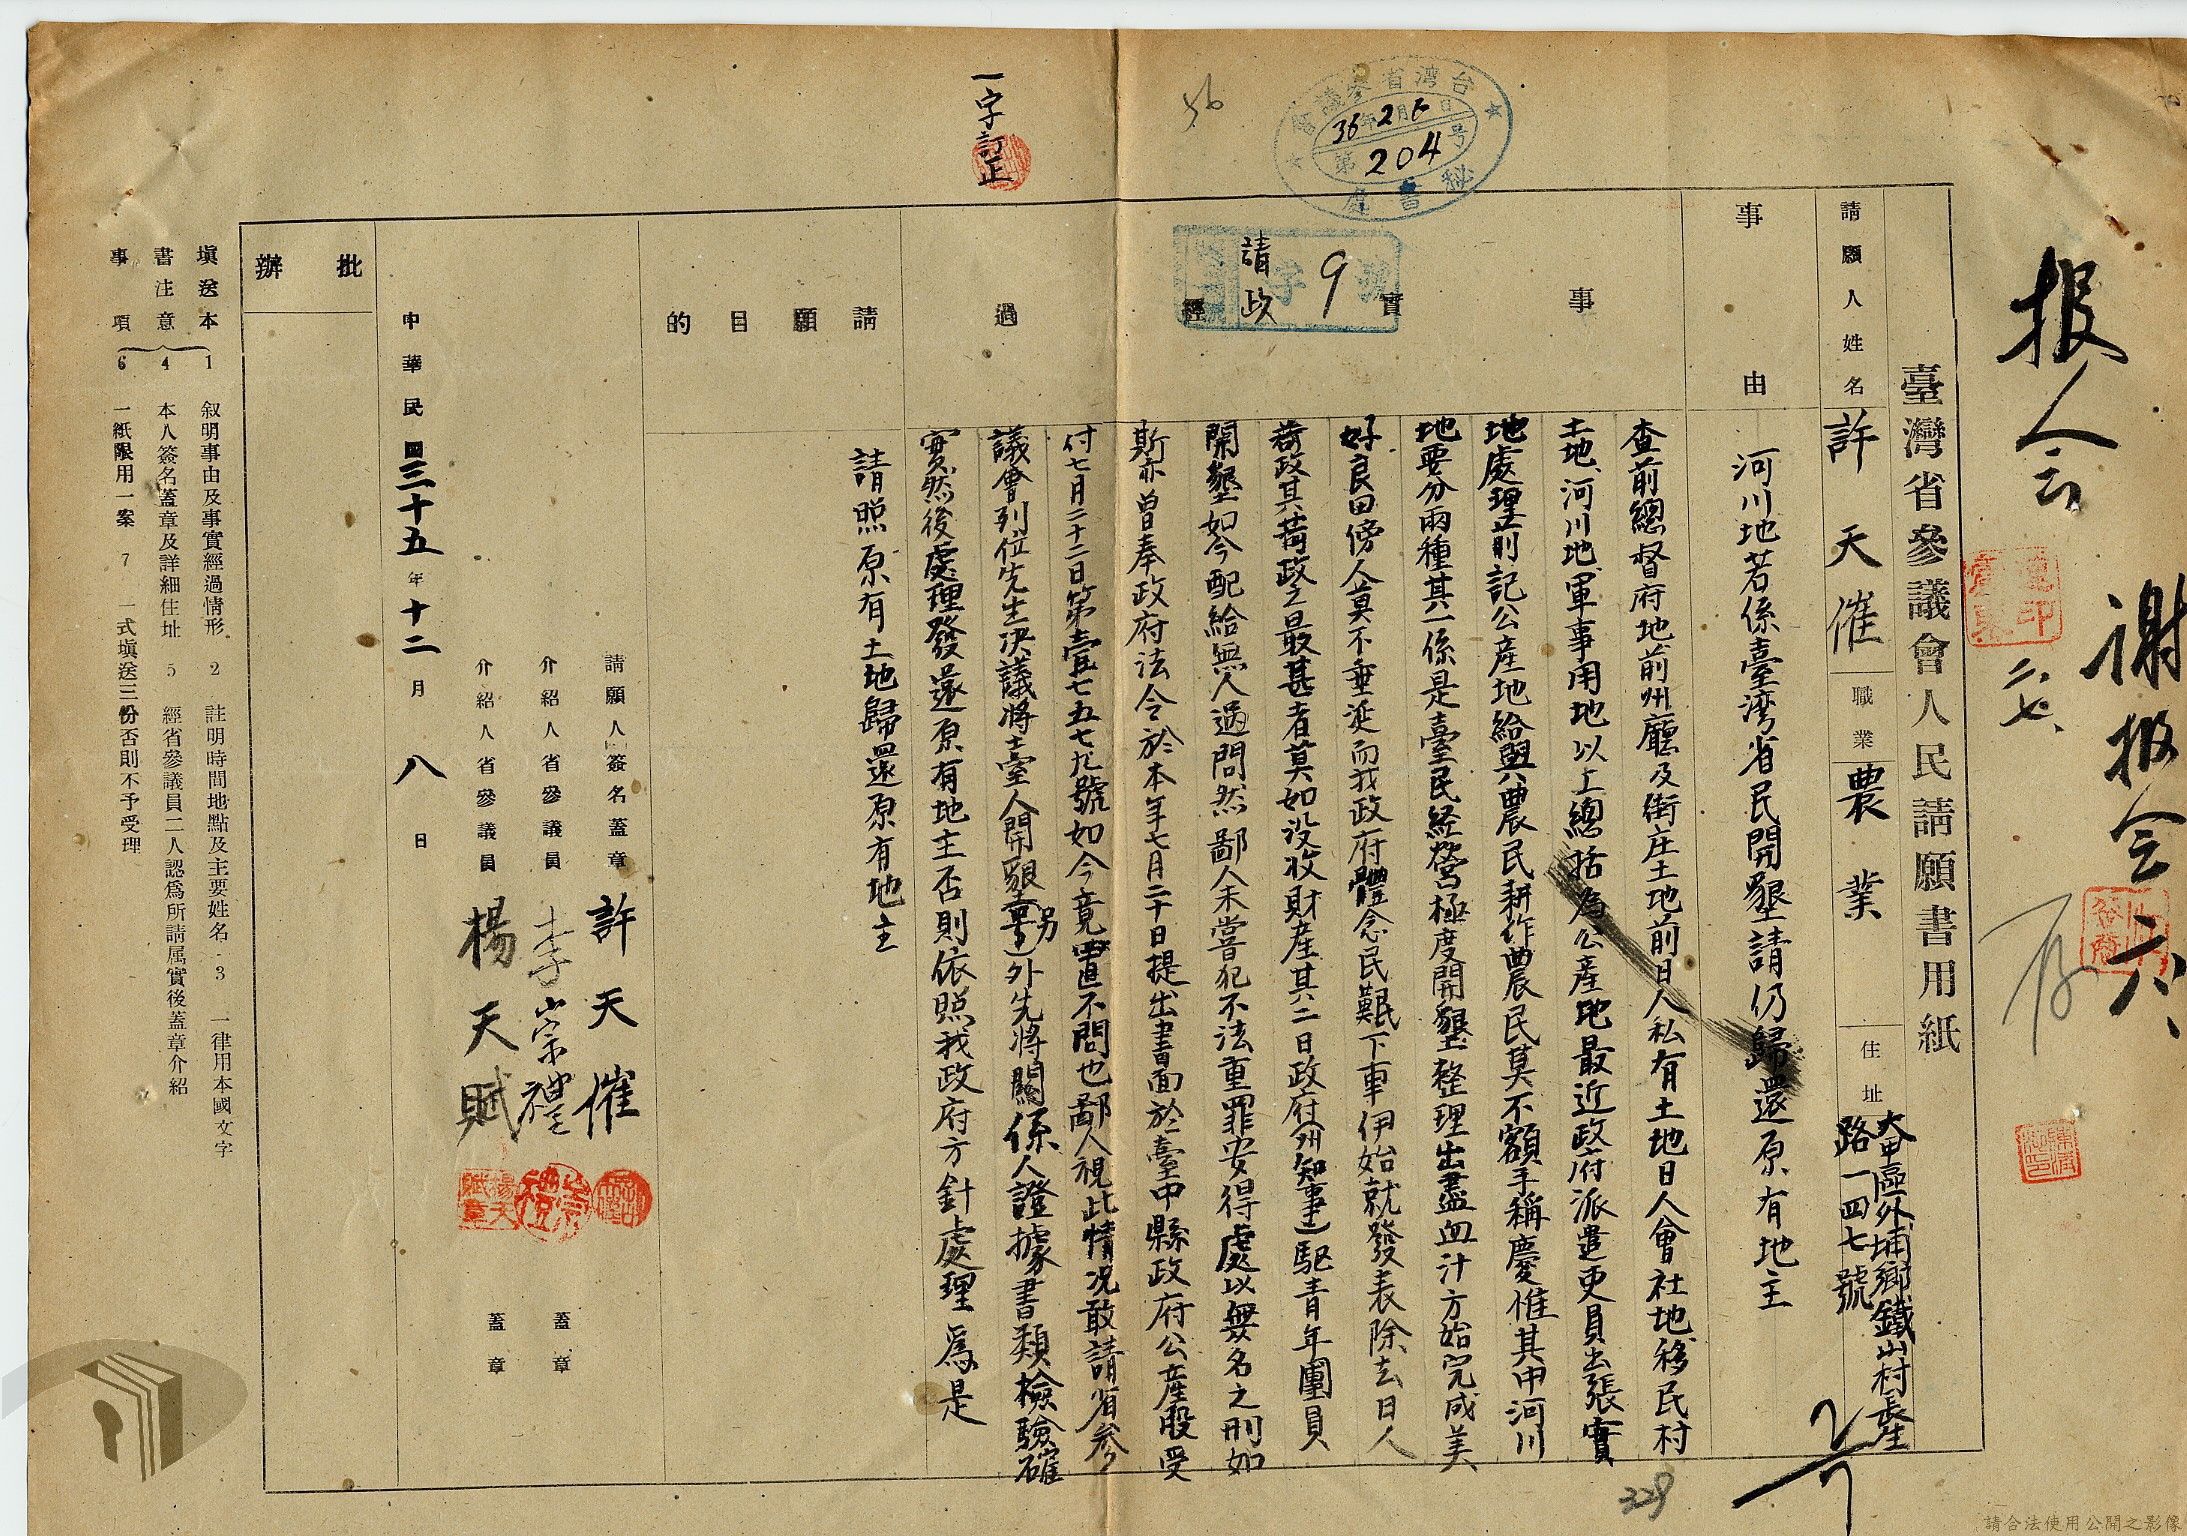 报人会
谢报会 六
二六
存
臺灣省參議會人民請願書用紙
請願人姓名 許天催 職業 農業 住址 大甲區外埔鄉鐵山村長生路一四七號
事由 河川地若係臺湾省民開墾請仍歸還原有地主
事實經過
查前總督府地前州廳及街庄土地前日人私有土地日人會社地移民村
土地、河川地軍事用地以上總括為公產地最近政府派遣吏員出張實
地處理前記公產地給與農民耕作農民莫不額手稱慶惟其中河川
地要分兩種其一係是臺民経營極度開墾整理出盡血汁方始完成美
好良田傍人莫不垂涎而我政府體念民艱下車伊始就發表除去日人
苛政其苛政之最甚者莫如沒收財產其二日政府(州知事)駆青年團員
開墾如今配給無人過問然鄙人未嘗犯不法重罪安得處以無名之刑如
斯亦曾奉政府法令於本年七月二十日提出書面於臺中縣政府公產股受
付七月二十二日第壹七五七九號如今竟置不問也鄙人視此情況敢請省參
議會列位先生決議將臺人開墾另外先將關係人證據書類檢驗確
實然後處理發還原有地主否則依照我政府方針處理為是
請願目的
請照原有土地歸還原有地主
請願人簽名蓋章 許天催
介紹人省參議員 李崇禮 蓋章
介紹人省參議員 楊天賦 蓋章
中華民國三十五年十二月八日
批辦
填送本書注意事項
1 叙明事由及事實經過情形 2 註明時間地點及主要姓名 3 一律用本國文字
4 本人簽名蓋章及詳細住址 5 經省參議員二人認為所請属實後蓋章介紹
6 一紙限用一案 7 一式填送三份否則不予受理
一字訂正
台湾省參議會
36年2月日
第204号
秘書處
請政字9號
56
229
2/7
請合法使用公開之影像